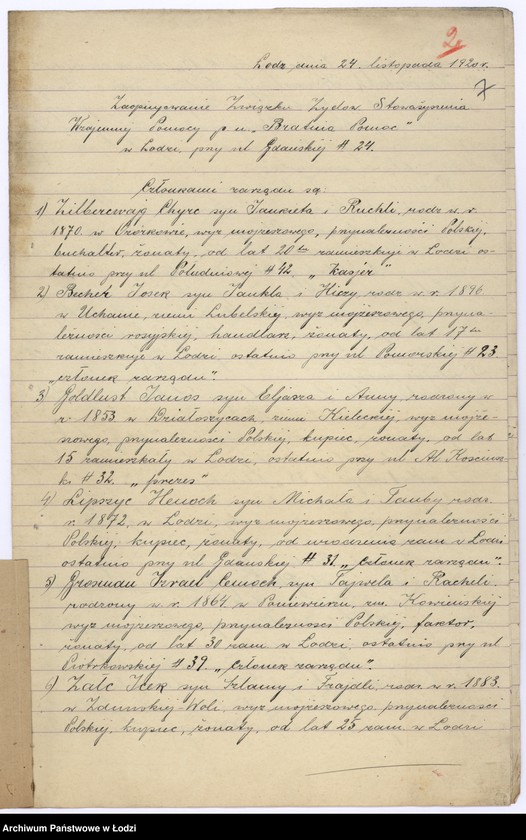 2
Łodz, dnia 24. listopada 1920 r.
7
Zaopinjowanie Związku Żydow. Stowarzyszenia
Wzajemnej Pomocy p. n. „Bratnia Pomoc"
w Łodzi, przy ul. Gdańskiej # 24.
Członkami zarządu są:
1) Zilbercwajg Chyrc syn Jankiela i Ruchli, rodz. w r.
1870. w Ozorkowie, wyz. mojżeszowego, przynależności Polskiej,
buchalter, żonaty, od lat 20tu zamieszkuje w Łodzi os-
tatnio przy ul. Południowej # 42. „Kasjer"
2) Becher Josek syn Jankla i Hiczy, rodz. w r. 1896
w Uchanie, ziemi Lubelskiej, wyz. mojżeszowego, przyna-
leżności rosyjskiej, handlarz, żonaty, od lat 17tu
zamieszkuje w Łodzi ostatnio przy ul. Pomorskiej # 23.
„członek zarządu".
3) Goldlust Janos syn Eljasza i Anny, rodzony w
r. 1853 w Działoszycach, ziemi Kieleckiej, wyz. mojże-
szowego, przynależności Polskiej, kupiec, żonaty, od lat
15 zamieszkały w Łodzi, ostatnio przy ul. Al. Kościusz-
ki # 32. „prezes"
4) Lipszyc Henoch syn Michała i Tauby rodz.
r. 1872, w Łodzi, wyz. mojżeszowego, przynależności
Polskiej, kupiec, żonaty, od urodzenia zam. w Łodzi
ostatnio przy ul. Gdańskiej # 31. „Członek zarządu".
5) Grosman Izrael Cemoch, syn Fajwela i Racheli
rodzony w r. 1864 w Poniewieżu, zm. Kowieńskiej
wyz. mojżeszowego, przynależności Polskiej, faktor,
żonaty, od lat 30 zam. w Łodzi, ostatnio przy ul.
Piotrkowskiej # 39. „Członek zarządu".
6) Załc Icek syn Szlamy i Frajdli, rodz. w r. 1883.
w Zduńskiej-Woli, wyz. mojżeszowego, przynależności
Polskiej, kupiec, żonaty, od lat 25 zam. w Łodzi
Archiwum Państwowe w Łodzi